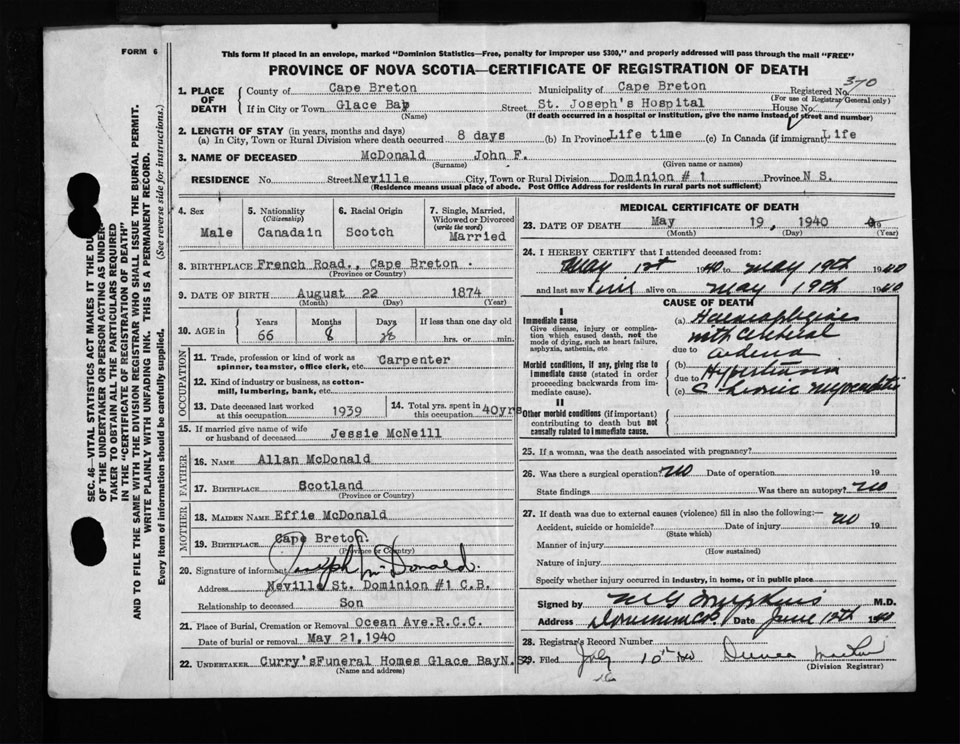 FORM 6
This form if placed in an envelope, marked "Dominion Statistics—Free, penalty for improper use $300," and properly addressed will pass through the mail "FREE"
PROVINCE OF NOVA SCOTIA—CERTIFICATE OF REGISTRATION OF DEATH
SEC. 46—VITAL STATISTICS ACT MAKES IT THE DU
OF THE UNDERTAKER OR PERSON ACTING AS UNDER-
TAKER TO OBTAIN ALL THE PARTICULARS REQUIRED
IN THE "CERTIFICATE OF REGISTRATION OF DEATH"
AND TO FILE THE SAME WITH THE DIVISION REGISTRAR WHO SHALL ISSUE THE BURIAL PERMIT.
WRITE PLAINLY WITH UNFADING INK. THIS IS A PERMANENT RECORD.
Every item of information should be carefully supplied. (See reverse side for instructions.)
1. PLACE OF DEATH County of Cape Breton Municipality of Cape Breton Registered No. 370
(For use of Registrar General only)
If in City or Town Glace Bay Street St. Joseph's Hospital House No.
(Name) (If death occurred in a hospital or institution, give the name instead of street and number)
2. LENGTH OF STAY (in years, months and days)
(a) In City, Town or Rural Division where death occurred 8 days (b) In Province Life time (c) In Canada (if immigrant) Life
3. NAME OF DECEASED McDonald John F.
(Surname) (Given name or names)
RESIDENCE No. Street Neville City, Town or Rural Division Dominion # 1 Province N S.
(Residence means usual place of abode. Post Office Address for residents in rural parts not sufficient)
4. Sex Male
5. Nationality (Citizenship) Canadain
6. Racial Origin Scotch
7. Single, Married, Widowed or Divorced (write the word) Married
8. BIRTHPLACE French Road., Cape Breton .
(Province or Country)
9. DATE OF BIRTH August 22 1874
(Month) (Day) (Year)
10. AGE in Years 66 Months 8 Days 28 If less than one day old hrs. or min.
OCCUPATION
11. Trade, profession or kind of work as spinner, teamster, office clerk, etc. Carpenter
12. Kind of industry or business, as cotton-mill, lumbering, bank, etc.
13. Date deceased last worked at this occupation 1939
14. Total yrs. spent in this occupation 40yrs
15. If married give name of wife or husband of deceased Jessie McNeill
FATHER
16. NAME Allan McDonald
17. BIRTHPLACE Scotland
(Province or Country)
MOTHER
18. MAIDEN NAME Effie McDonald
19. BIRTHPLACE Cape Breton.
(Province or Country)
20. Signature of informant Joseph McDonald.
Address Neville St. Dominion #1 C.B.
Relationship to deceased Son
21. Place of Burial, Cremation or Removal Ocean Ave.R.C.C.
Date of burial or removal May 21,1940
22. UNDERTAKER Curry'sFuneral Homes Glace BayN.S
(Name and address)
MEDICAL CERTIFICATE OF DEATH
23. DATE OF DEATH May 19, 1940
(Month) (Day) (Year)
24. I HEREBY CERTIFY that I attended deceased from:
May 1st 1940 to May 19th 1940
and last saw him alive on May 19th 1940
CAUSE OF DEATH
I
Immediate cause
Give disease, injury or complication which caused death, not the mode of dying, such as heart failure, asphyxia, asthenia, etc
(a)
with Cerebral
due to
Morbid conditions, if any, giving rise to immediate cause (stated in order proceeding backwards from immediate cause).
(b) Hypertension
due to
(c) Chronic myocarditis
II
Other morbid conditions (if important) contributing to death but not causally related to immediate cause.
25. If a woman, was the death associated with pregnancy?
26. Was there a surgical operation? no Date of operation 19
State findings Was there an autopsy? no
27. If death was due to external causes (violence) fill in also the following:— no
Accident, suicide or homicide? Date of injury 19
(State which)
Manner of injury
(How sustained)
Nature of injury
Specify whether injury occurred in industry, in home, or in public place
Signed by M.D.
Address Date June 12th 1940
28. Registrar's Record Number
29. Filed July 10th 40
16
(Division Registrar)